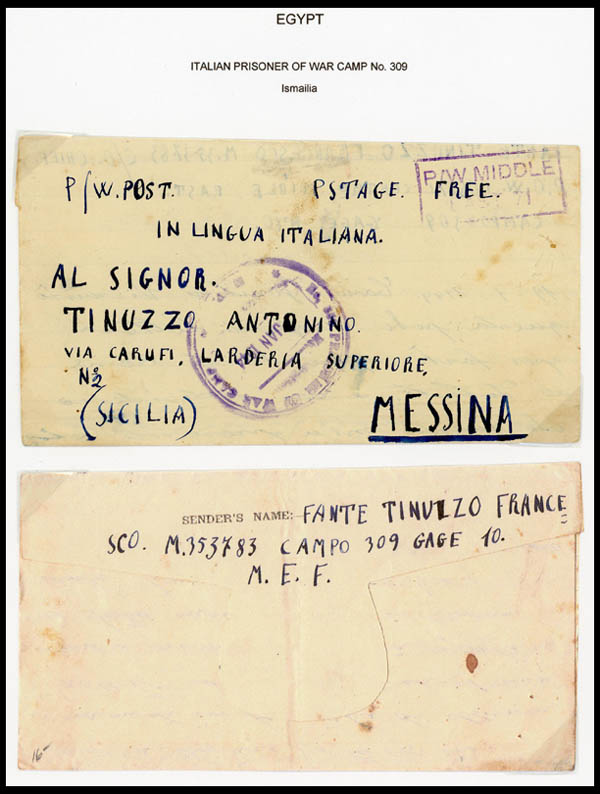 EGYPT
ITALIAN PRISONER OF WAR CAMP No. 309
Ismailia
P/W MIDDLE
P/W. POST. PSTAGE. FREE.
IN LINGUA ITALIANA.
AL SIGNOR.
TINUZZO ANTONINO.
VIA CARUFI, LARDERIA SUPERIORE,
Nº2
(SICILIA) MESSINA
WAR CAMP
JAN
SENDER'S NAME: FANTE TINUZZO FRANCE=
SCO. M.353783 CAMPO 309 GAGE 10.
M. E. F.
16-